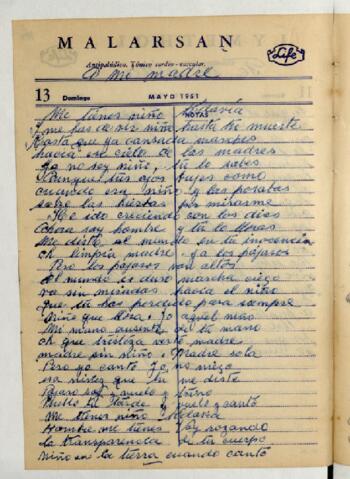 MALARSAN
Antipalúdico. Tónico cardio-vascular.
Life
A mi madre
13 Domingo MAYO 1951
NOTAS
Me tienes niño todavía
Y me has de ver niño hasta tu muerte
Hasta que ya cansada marches
hacia ese cielo de las madres
Ya no soy niño, tú lo sabes
Porque tus ojos
cuando era niño y los posabas
sobre las por mirarme
He ido creciendo con los días
Ahora soy hombre y tú lo lloras
Me diste al mundo en tu inocencia
oh limpia madre. Ya los pájaros
Pero los pájaros van altos
el mundo es duro marcha ciego
va sin miradas hacia el niño
que tú has perdido para siempre
Niño que llora. Yo aquel niño
Mi mano ausente de tu mano
oh que tristeza verte madre
madre sin niño. Madre sola
Pero yo canto Yo, no
esa niñez que tu me diste
Pájaro soy y vuelo y torno
vuelo y canto
Me tienes niño Todavía
Hombre me tienes Voy rozando
la transparencia de tu cuerpo
Niño en la tierra cuando canto